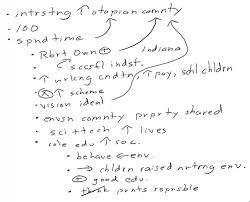 · intrstng ↑ otopian comnty
· 100
· spnd time
· Rbrt Own ⊕ Indiana
· sccsfl indst.
· ↑ wrkng cndtn, ↑ pay, schl chldrn
· ⊗ ↑ scheme
· vision ideal
· envsn comnty prprty shared
· sci + tech ↑ lives
· role edu ↑ soc.
· behave ← env.
→ chldrn raised nrtrng env.
⊕ good edu.
· prnts rspnsble